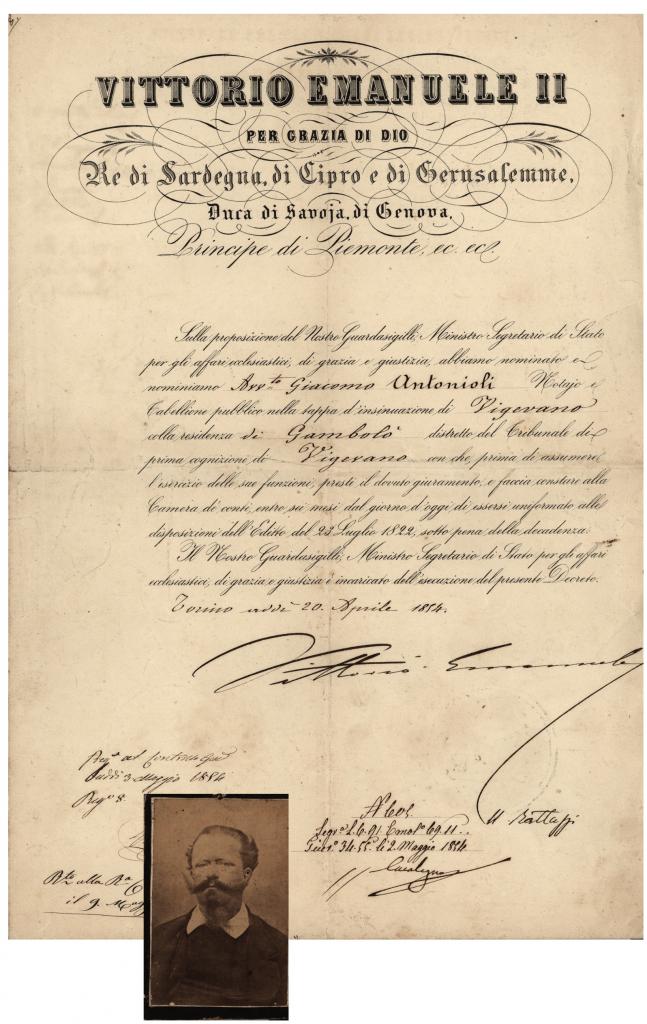 VITTORIO EMANUELE II
PER GRAZIA DI DIO
Re di Sardegna, di Cipro e di Gerusalemme,
Duca di Savoja, di Genova,
Principe di Piemonte, ec. ec.
Sulla proposizione del Nostro Guardasigilli, Ministro Segretario di Stato
per gli affari ecclesiastici, di grazia e giustizia, abbiamo nominato e
nominiamo Avv.to Giacomo Antonioli Notajo e
Tabellione pubblico nella tappa d'insinuazione di Vigevano
colla residenza di Gambolò distretto del Tribunale di
prima cognizione di Vigevano con che, prima di assumere
l'esercizio delle sue funzioni, presti il dovuto giuramento, e faccia constare alla
Camera di conti, entro sei mesi dal giorno d'oggi di essersi uniformato alle
disposizioni dell'Editto del 23 Luglio 1822, sotto pena della decadenza.
Il Nostro Guardasigilli, Ministro Segretario di Stato per gli affari
ecclesiastici, di grazia e giustizia è incaricato dell'esecuzione del presente Decreto.
Torino addì 20. Aprile 1854.
Vittorio Emanuele
addì 3 Maggio 1854
Reg.o 8.
U Rattazzi
N 601
Segr.o L. 6. 91 Emol.o 69. 11
34. 55. li 2. Maggio 1854
alla
il 9